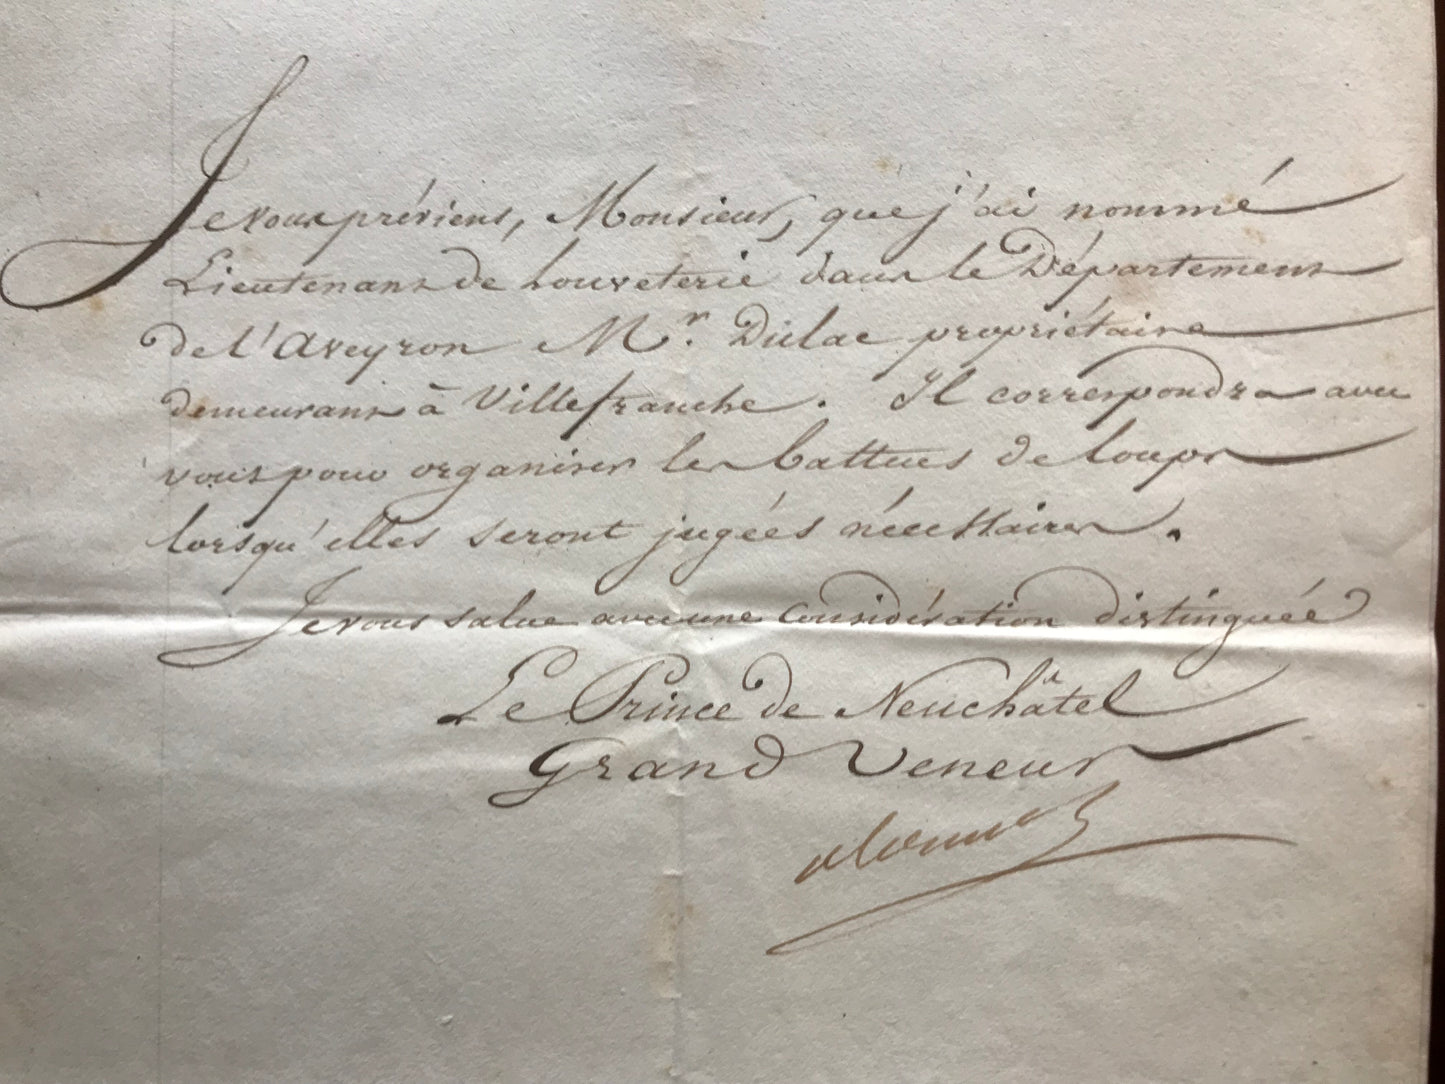 Je vous préviens, Monsieur, que j'ai nommé
Lieutenant de Louveterie dans le Département
de l'Aveyron Mr. Dulac propriétaire
demeurant à Villefranche. Il correspondra avec
vous pour organiser les battues de loups
lorsqu'elles seront jugées nécessaires.
Je vous salue avec une considération distinguée
Le Prince de Neuchâtel
Grand Veneur